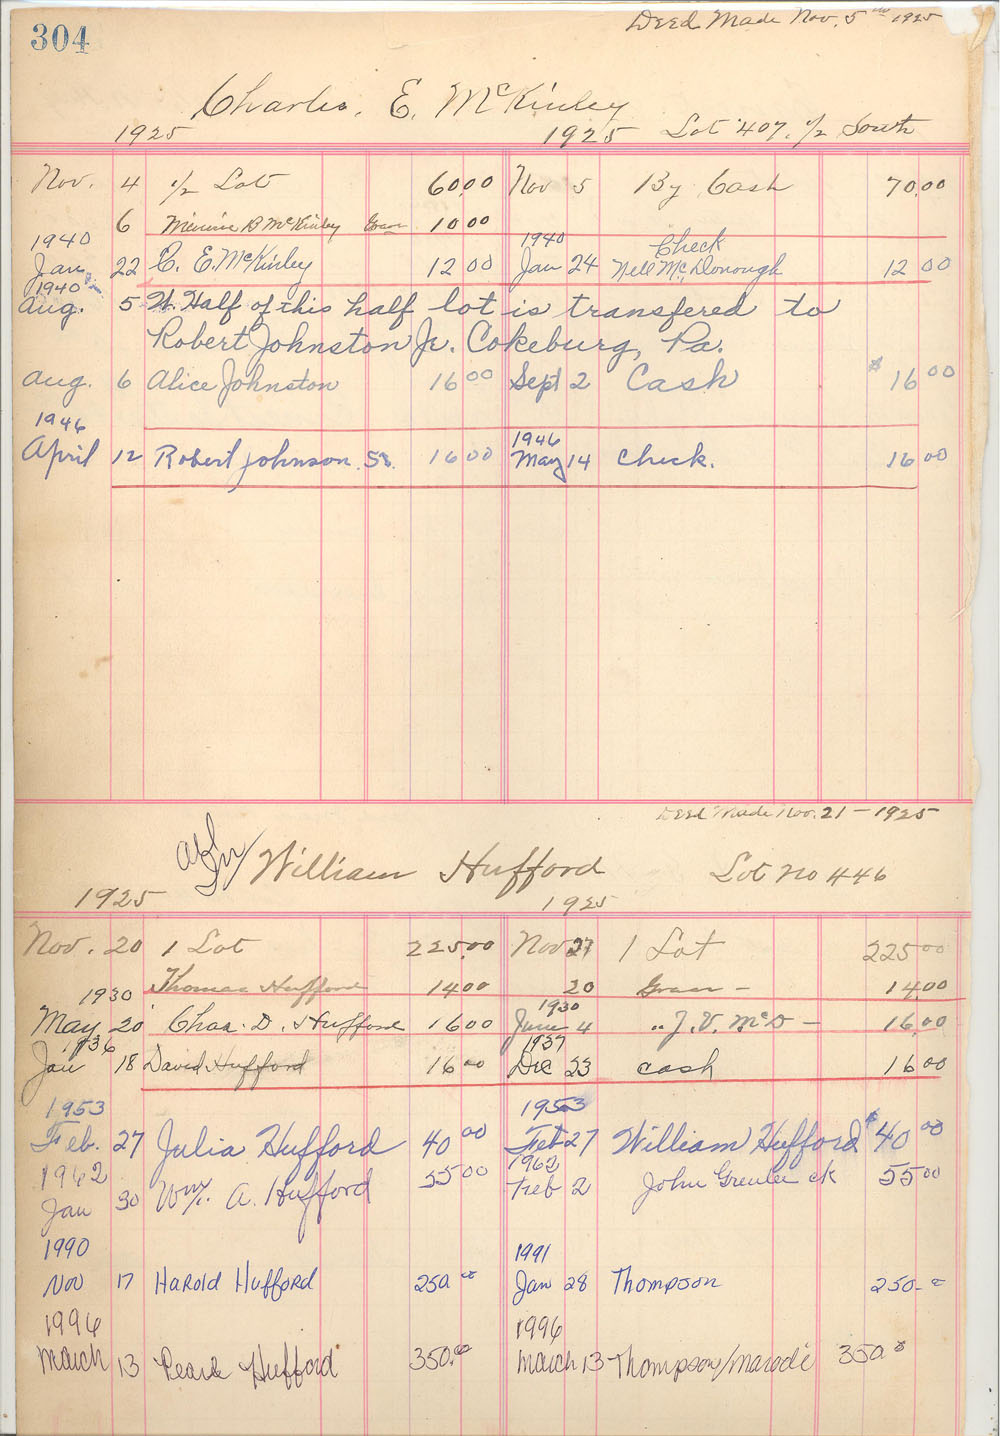 304
Deed Made Nov. 5 1925
Charles. E. McKinley
1925 1925 Lot 407. 1/2 South
Nov. 4 1/2 Lot 60.00 Nov 5 By Cash 70.00
6 Minnie B McKinley Grave 10 00
1940 1940 Check
Jan. 22 C. E. McKinley 12 00 Jan 24 Nell McDonough 12 00
1940
Aug. 5 W. Half of this half lot is transfered to
Robert Johnston Jr. Cokeburg, Pa.
Aug. 6 Alice Johnston 16 00 Sept 2 Cash $ 16 00
1946 1946
April 12 Robert Johnson. Sr. 16 00 May 14 Check. 16 00
Deed Made Nov. 21 - 1925
William Hufford Lot No 446
1925 1925
Nov. 20 1 Lot 225.00 Nov 27 1 Lot 225.00
Thomas Hufford 14 00 20 Grave - 14.00
1930 1930
May 20 Chas. D. Hufford 16 00 June 4 " J. V. McD - 16.00
1936 1937
Jan 18 David Hufford 16 00 Dec 23 cash 16 00
1953 1953
Feb. 27 Julia Hufford 40 00 Feb 27 William Hufford $40 00
1962 1962
Jan 30 Wm. A. Hufford 55 00 Feb 2 John Greenlee ck 55 00
1990 1991
Nov 17 Harold Hufford 250. 00 Jan 28 Thompson 250. 00
1996 1996
March 13 Pearle Hufford 350. 00 March 13 Thompson/Marodi 350. 00